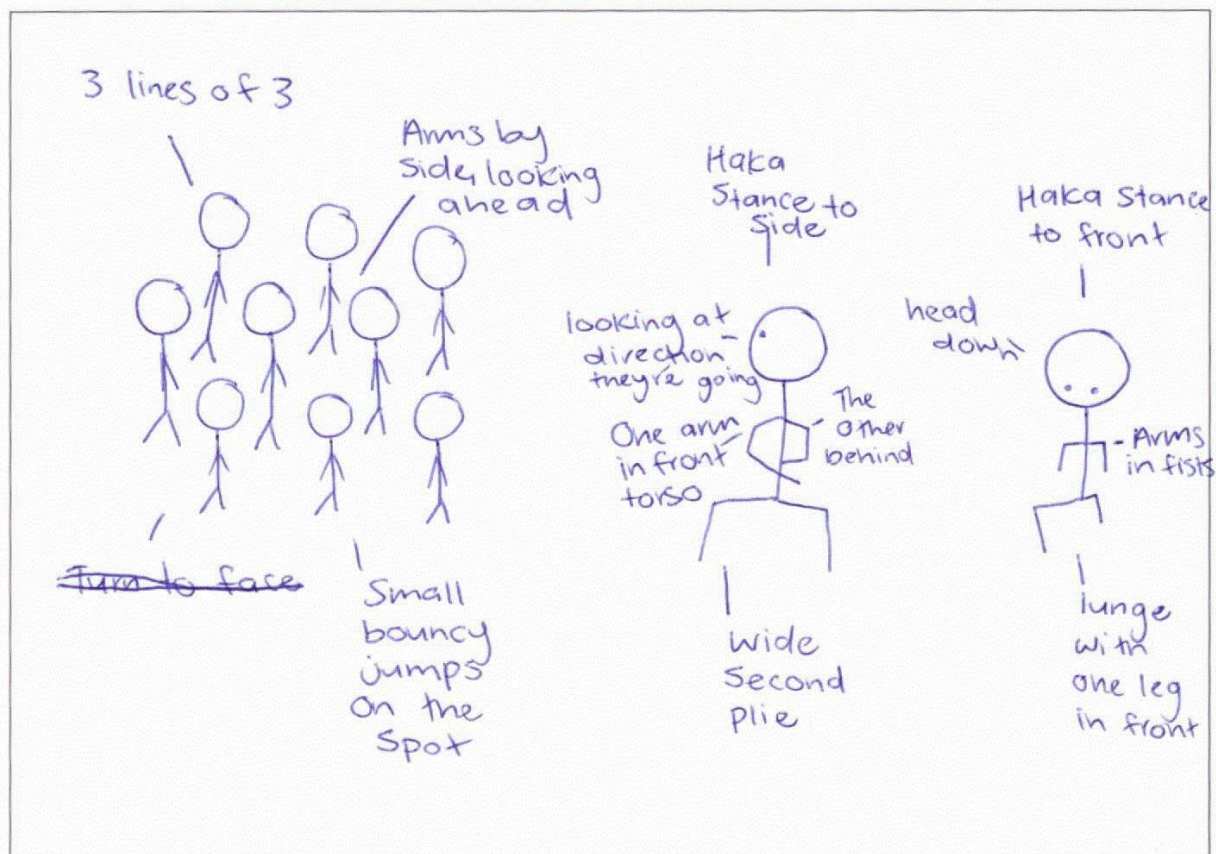 3 lines of 3
Arms by
side, looking
ahead
Turn to face
Small
bouncy
jumps
on the
spot
Haka
Stance to
Side
looking at
direction
they're going
One arm
in front
torso
The
other
behind
wide
second
plie
Haka Stance
to front
head
down
Arms
in fists
lunge
with
one leg
in front